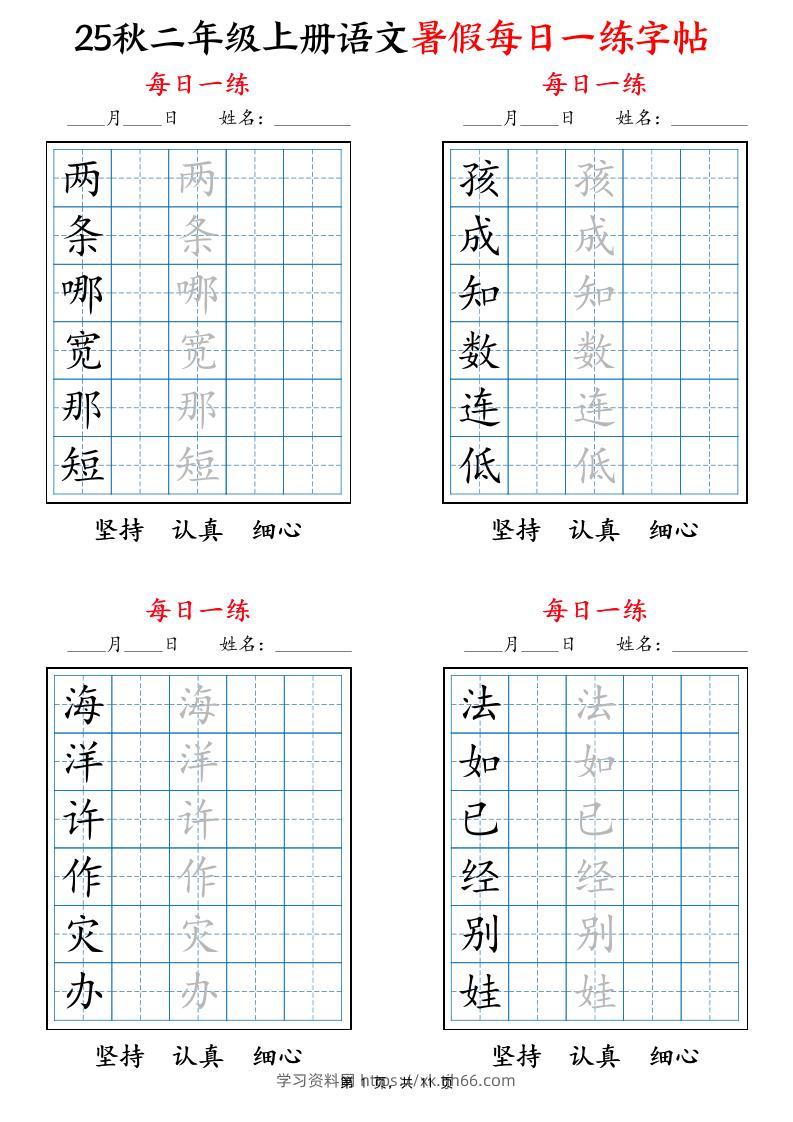 25秋二年级上册语文暑假每日一练字帖
每日一练
____月____日 姓名：________
两 两
条 条
哪 哪
宽 宽
那 那
短 短
坚持 认真 细心
每日一练
____月____日 姓名：________
孩 孩
成 成
知 知
数 数
连 连
低 低
坚持 认真 细心
每日一练
____月____日 姓名：________
海 海
洋 洋
许 许
作 作
灾 灾
办 办
坚持 认真 细心
每日一练
____月____日 姓名：________
法 法
如 如
已 已
经 经
别 别
娃 娃
坚持 认真 细心
第 1 页，共 11 页
学习资料网